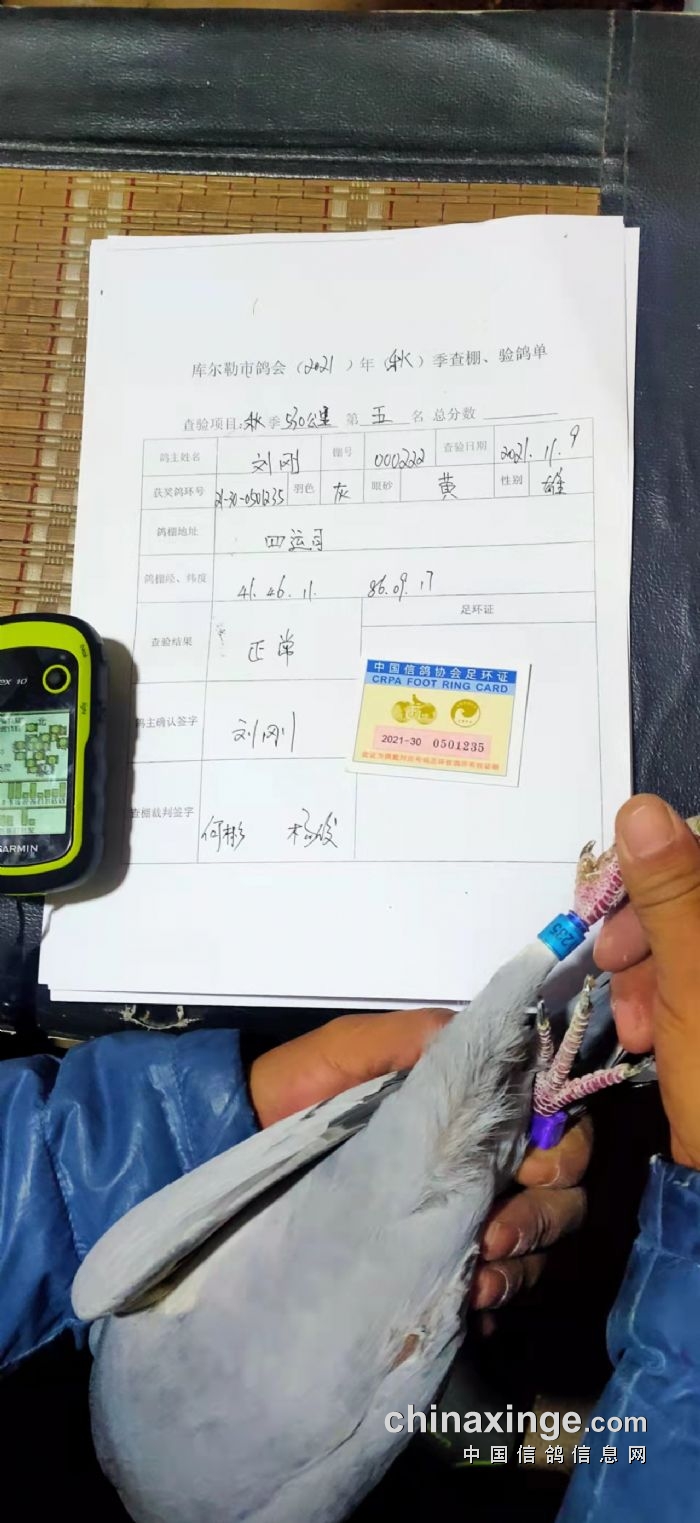 库尔勒市鸽会（2021）年（秋）季查棚、验鸽单
查验项目:秋季530公里 第 五 名 总分数
鸽主姓名 刘刚 棚号 000222 查验日期 2021.11.9
获奖鸽环号 21-30-0501235 羽色 灰 眼砂 黄 性别 雄
鸽棚地址 四运司
鸽棚经、纬度 41.46.11. 86.09.17
足环证
查验结果 正常
中国信鸽协会足环证
CRPA FOOT RING CARD
2021-30 0501235
鸽主确认签字 刘刚
查棚裁判签字 何彬
ex 10
GARMIN
235
chinaxinge.com
中国信鸽信息网